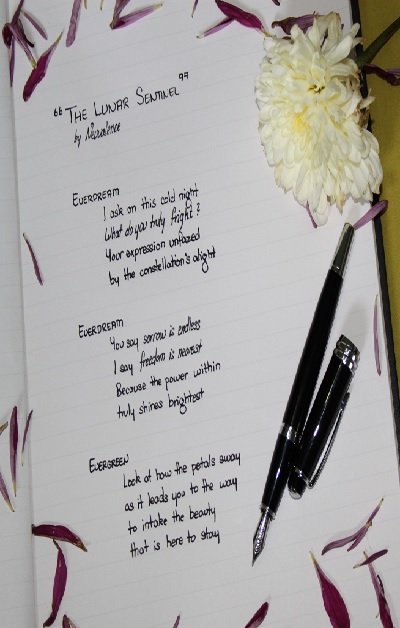 "THE LUNAR SENTINEL"
by Novalence
EVERDREAM
I ask on this cold night
What do you truly fright?
Your expression unfazed
by the constellation's alight
EVERDREAM
You say sorrow is endless
I say freedom is nearest
Because the power within
truly shines brightest
EVERGREEN
Look at how the petals sway
as it leads you to the way
to intake the beauty
that is here to stay